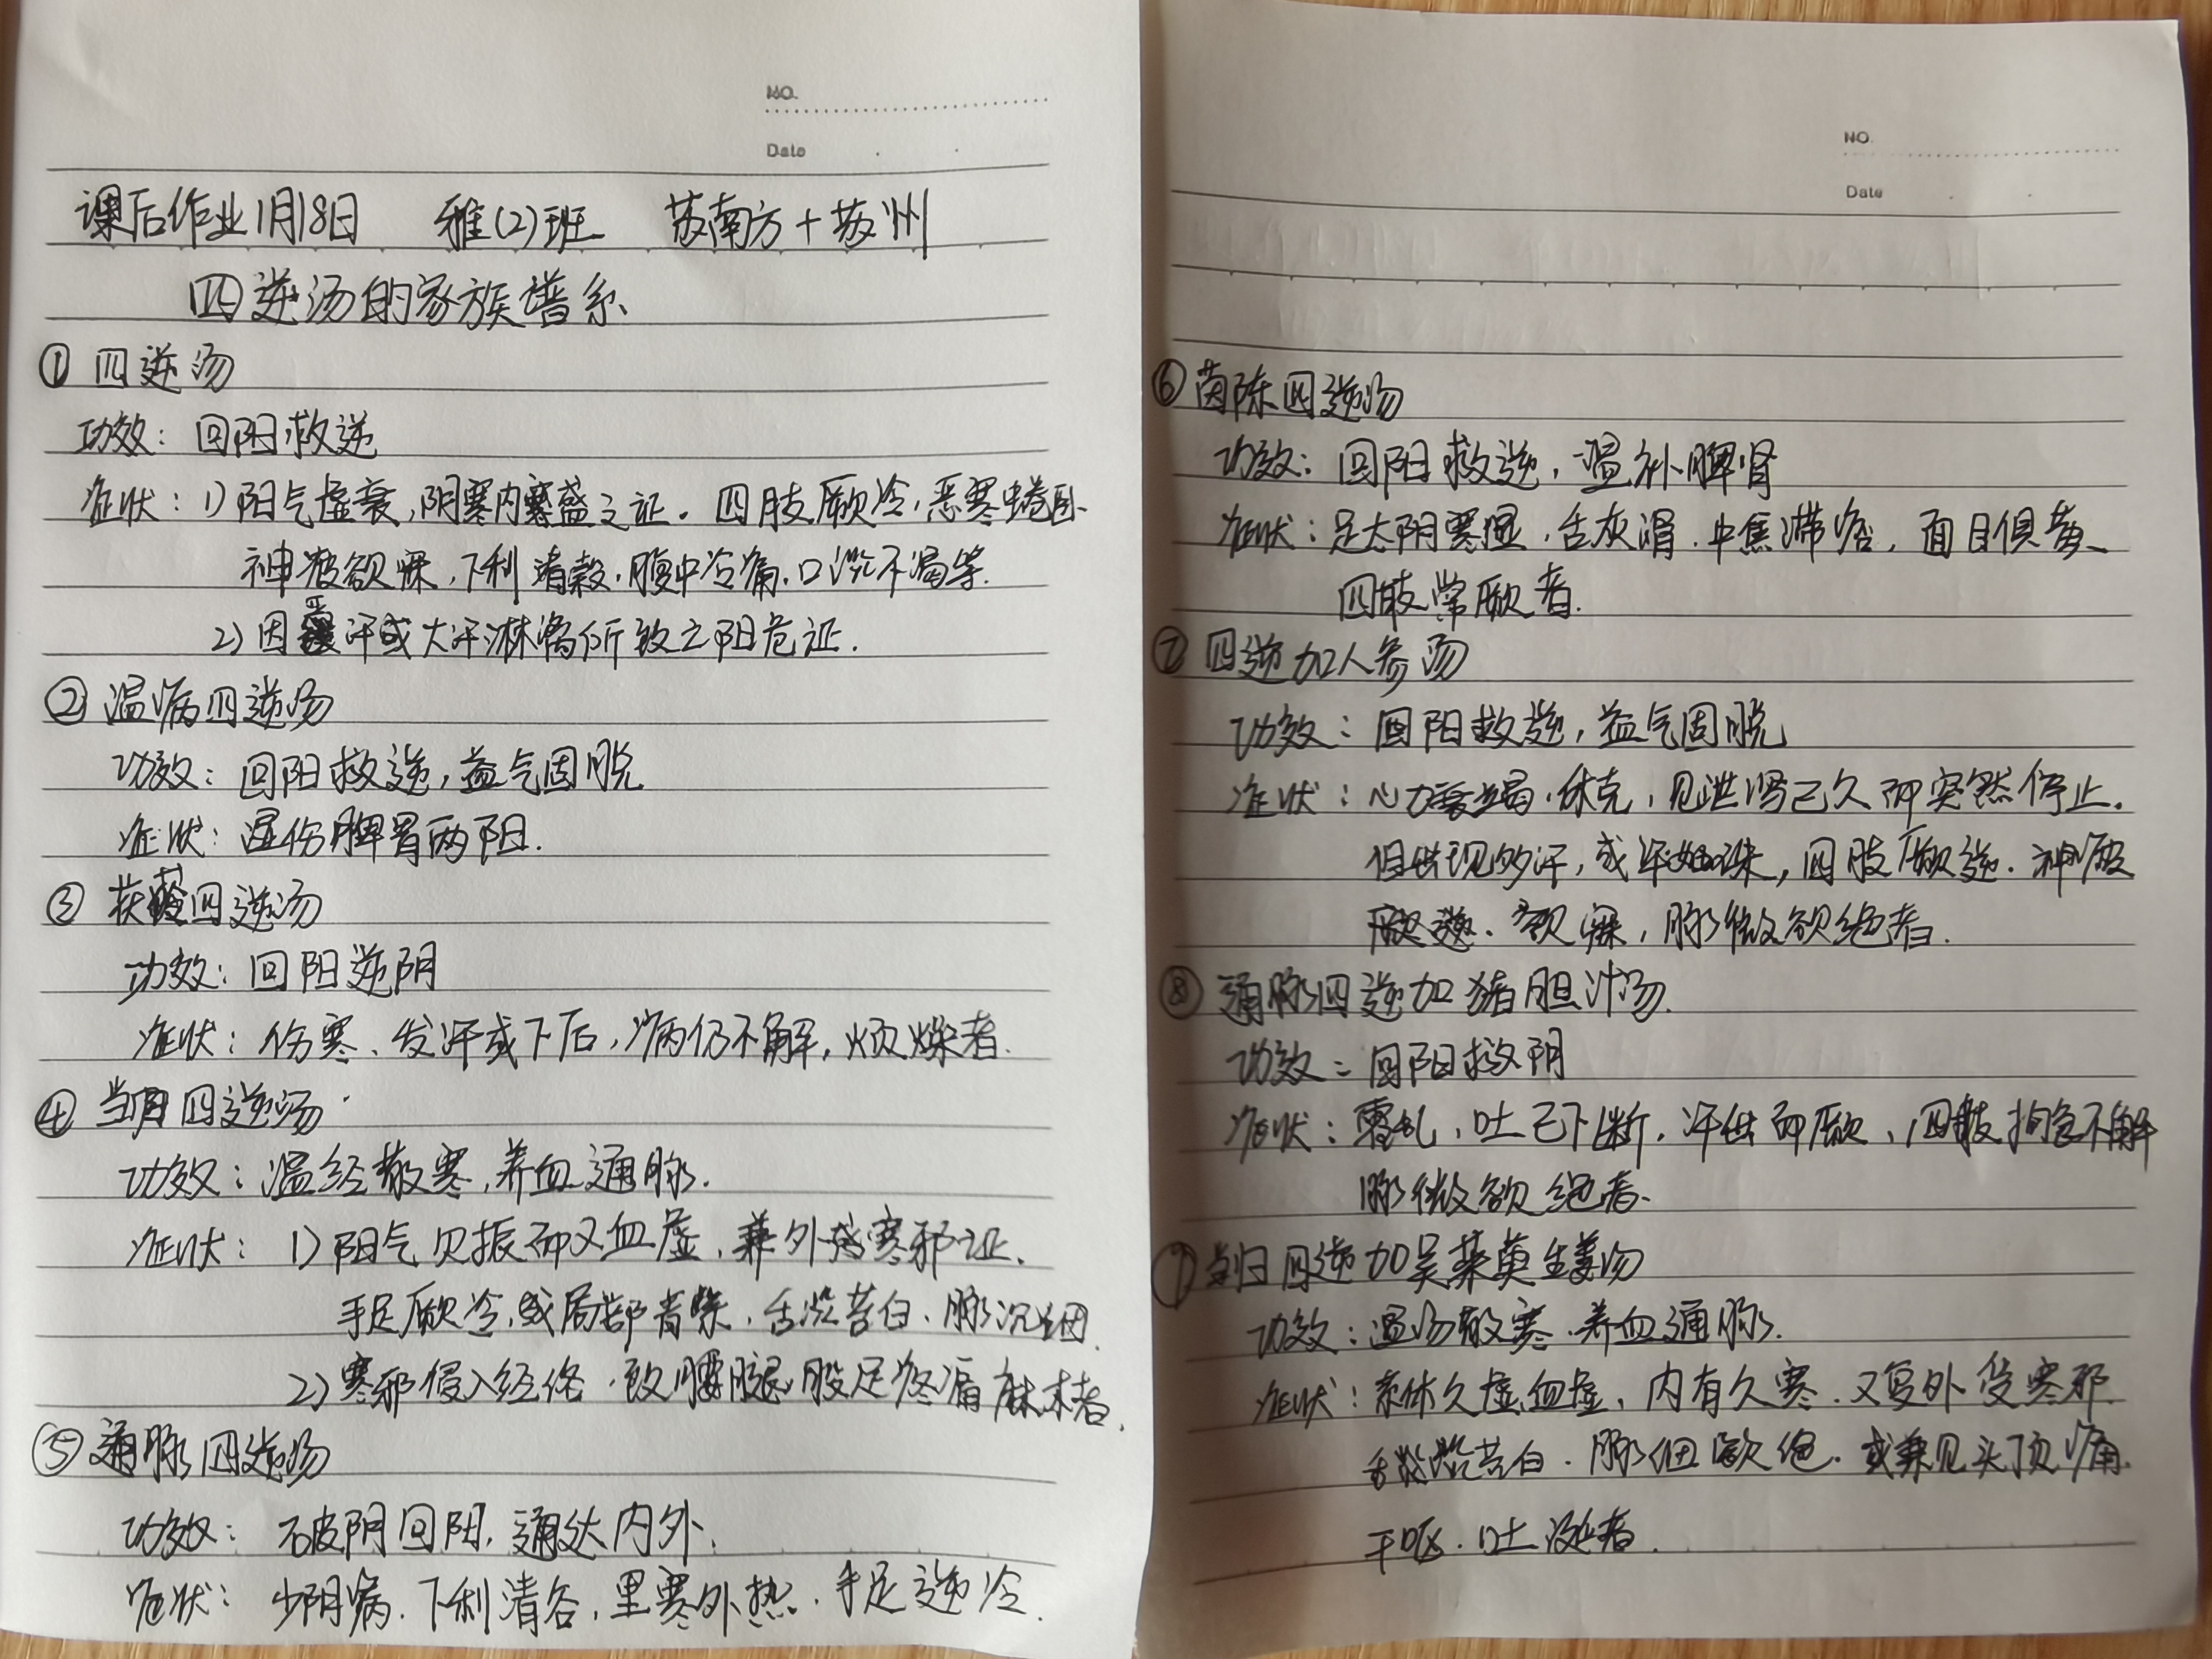 NO.
Date
课后作业1月18日 雅(2)班 苏南方+苏州
四逆汤的家族谱系
① 四逆汤
功效：回阳救逆
症状：1)阳气虚衰,阴寒内盛之证。四肢厥冷,恶寒蜷卧
神疲欲寐,下利清穀,腹中冷痛,口淡不渴等.
2)因误汗或大汗淋漓所致亡阳危证.
② 温病四逆汤
功效：回阳救逆,益气固脱
症状：湿伤脾胃两阳.
③ 茯苓四逆汤
功效：回阳逆阴
症状：伤寒、发汗或下后,病仍不解,烦燥者.
④ 当归四逆汤
功效：温经散寒,养血通脉.
症状：1)阳气欠振而又血虚,兼外感寒邪证.
手足厥冷,或局部青紫,舌淡苔白、脉沉细.
2)寒邪侵入经络,致腰腿股足疼痛麻木者.
⑤ 通脉四逆汤
功效：破阴回阳,通达内外.
症状：少阴病.下利清谷,里寒外热.手足逆冷.
NO.
Date
⑥ 茵陈四逆汤
功效：回阳救逆,温补脾肾
症状：足太阴寒湿,舌灰滑.中焦滞痞,面目俱黄、
四肢常厥者.
⑦ 四逆加人参汤
功效：回阳救逆,益气固脱
症状：心力衰竭.休克,见泄泻已久而突然停止.
但出现多汗,或汗如珠,四肢厥逆.神疲
厥逆、欲寐,脉微欲绝者.
⑧ 通脉四逆加猪胆汁汤.
功效：回阳救阴
症状：霍乱,吐已下断,汗出而厥、四肢拘急不解
脉微欲绝者.
⑨ 当归四逆加吴茱萸生姜汤
功效：温汤散寒.养血通脉.
症状：素体久虚血虚,内有久寒.又复外受寒邪.
舌淡苔白.脉细欲绝.或兼见头顶痛.
干呕.吐涎者.